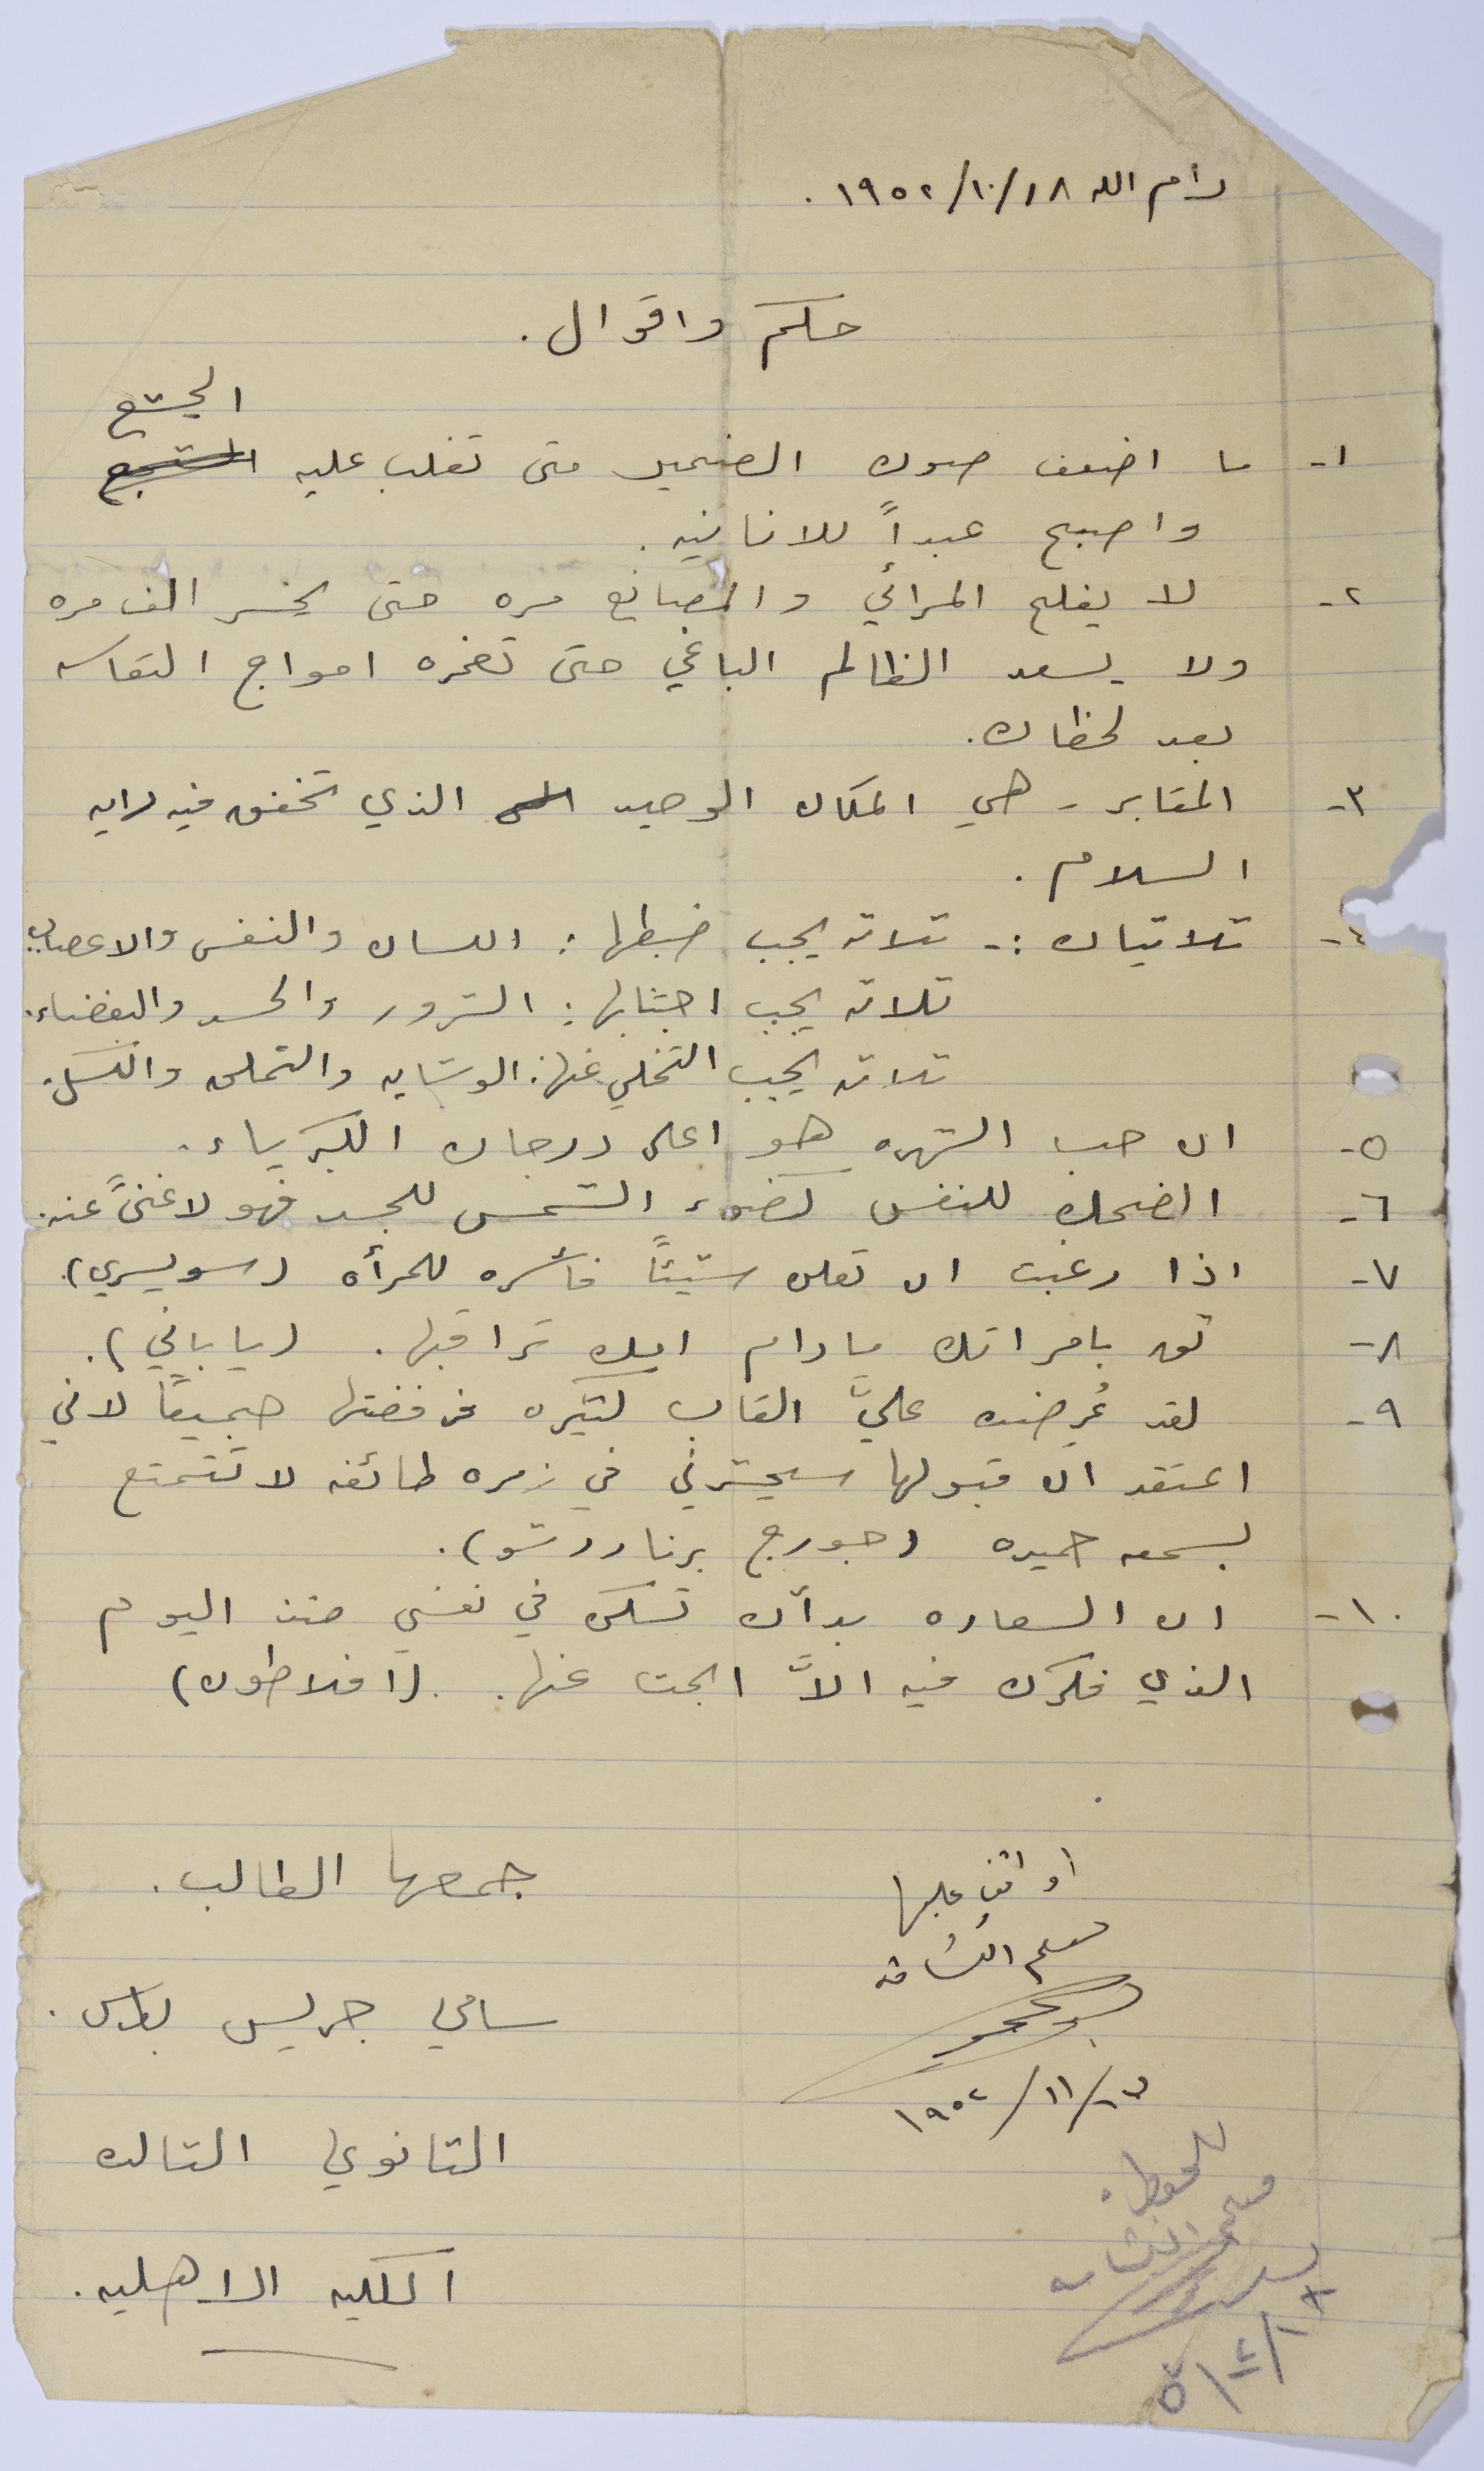 رام الله ١٨/١٠/١٩٥٢.
حكم واقوال.
الجشع
١- ما اضعف صوت الضمير متى تغلب عليه
واصبح عبداً للانانيه.
٢- لا يفلح المرائي والمصانع مره حتى يخسر الف مره
ولا يسعد الظالم الباغي حتى تغمره امواج التعاسه
بعد لحظات.
٣- المقابر - هي المكان الوحيد الذي تخفق فيه رايه
السلام.
٤- ثلاثيات :- ثلاثه يجب ضبطها: اللسان والنفس والاعصاب.
ثلاثه يجب اجتنابها: الشرور والحسد والبغضاء.
ثلاثه يجب التخلي عنها: الوشايه والتملق والكسل.
٥- ان حب الشهره هو اعلى درجات الكبرياء.
٦- الضحك للنفس كضوء الشمس للجسد فهو لا غنىً عنه.
٧- اذا رغبت ان تعلن شيئاً فأسره للمرأه (سويسري).
٨- ثق بامراتك ما دام امك تراقبها. (ياباني).
٩- لقد عُرضت عليَّ القاب كثيره فرفضتها جميعاً لاني
اعتقد ان قبولها سيحشرني في زمره طائفه لا تتمتع
بسمعه حميده (جورج برناردشو).
١٠- ان السعاده بدأت تسكن في نفسي منذ اليوم
الذي فكرت فيه الاَّ ابحث عنها. (افلاطون)
جمعها الطالب.
سامي جريس بطرس.
الثانوي الثالث
الكليه الاهليه.
اوافق عليها
معلم الكشافه
١٩٥٢/١١/
للحفظ.